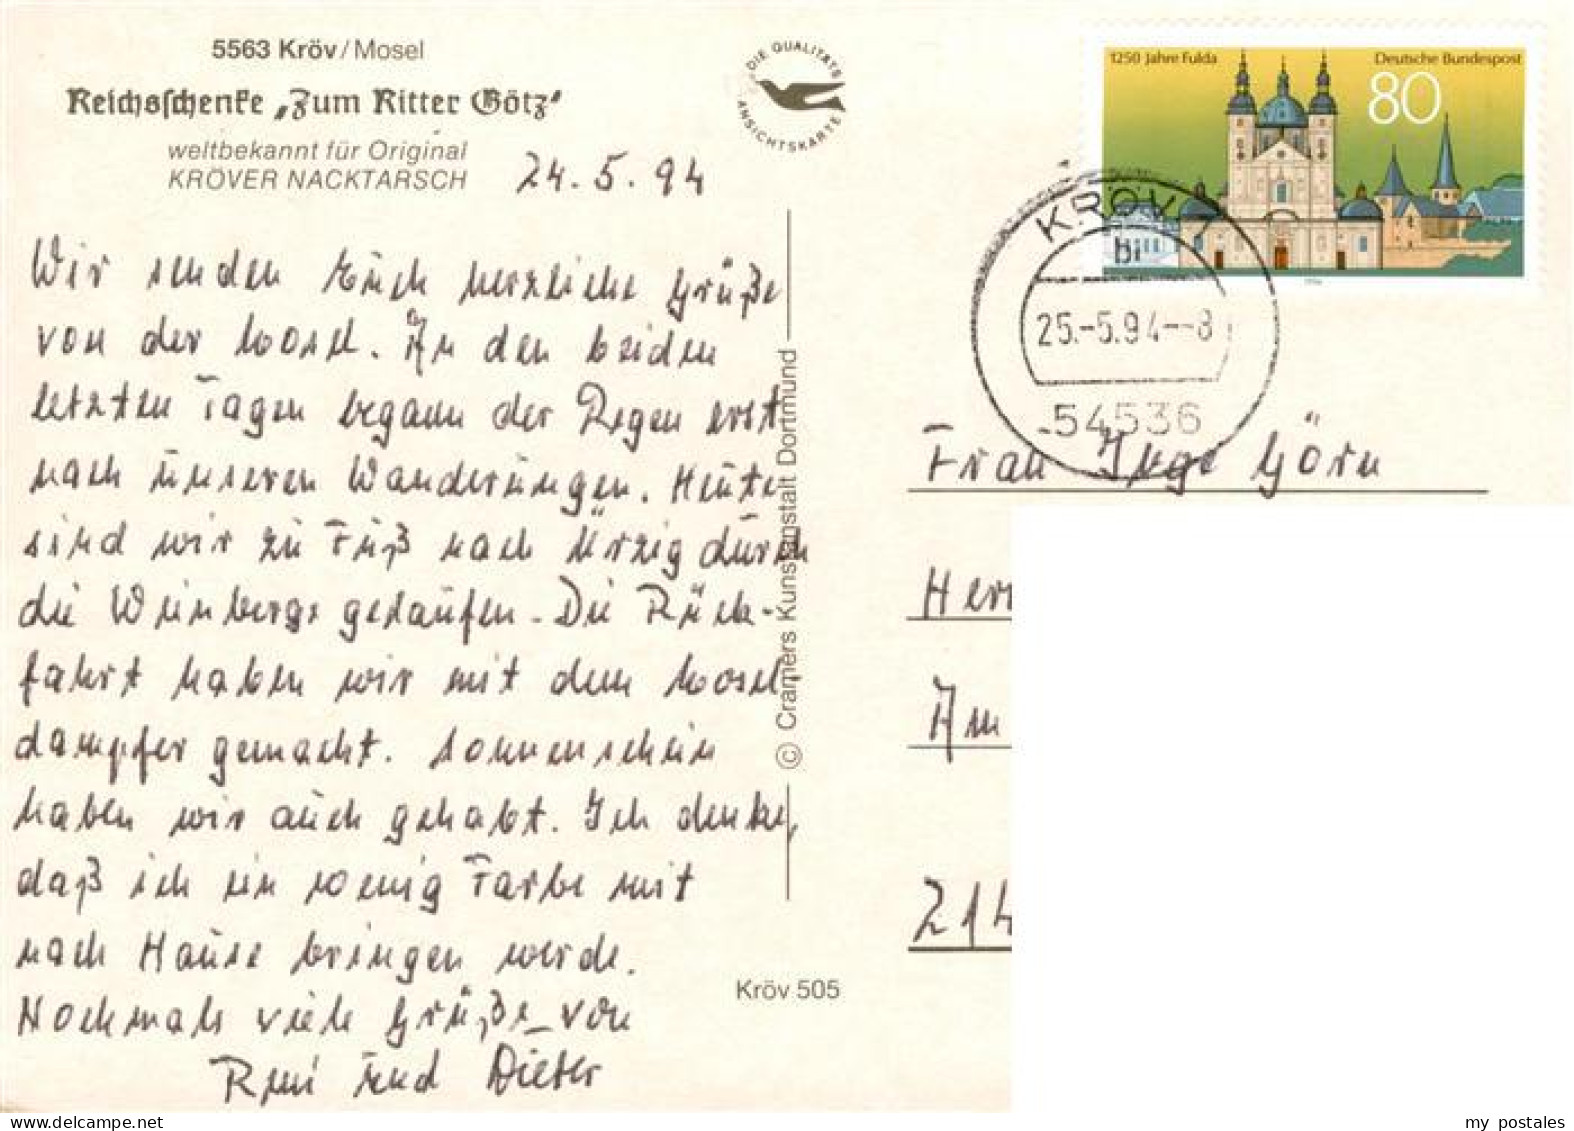 5563 Kröv/Mosel
Reichsschenke „Zum Ritter Götz"
weltbekannt für Original
KRÖVER NACKTARSCH
24.5.94
Wir senden Euch herzliche Grüße
von der Mosel. An den beiden
letzten Tagen begann der Regen erst
nach unseren Wanderungen. Heute
sind wir zu Fuß nach Ürzig durch
die Weinberge gelaufen. Die Rück-
fahrt haben wir mit dem Mosel
dampfer gemacht. Sonnenschein
haben wir auch gehabt. Ich denke,
daß ich ein wenig Farbe mit
nach Hause bringen werde.
Nochmals viele Grüße von
und Dieter
DIE QUALITÄTS
ANSICHTSKARTE
© Cramers Kunstanstalt Dortmund
Kröv 505
1250 Jahre Fulda
Deutsche Bundespost
80
KRÖV
bi
25.-5.94--8
54536
Frau Inge Görn
Herr
Am
214
my postales